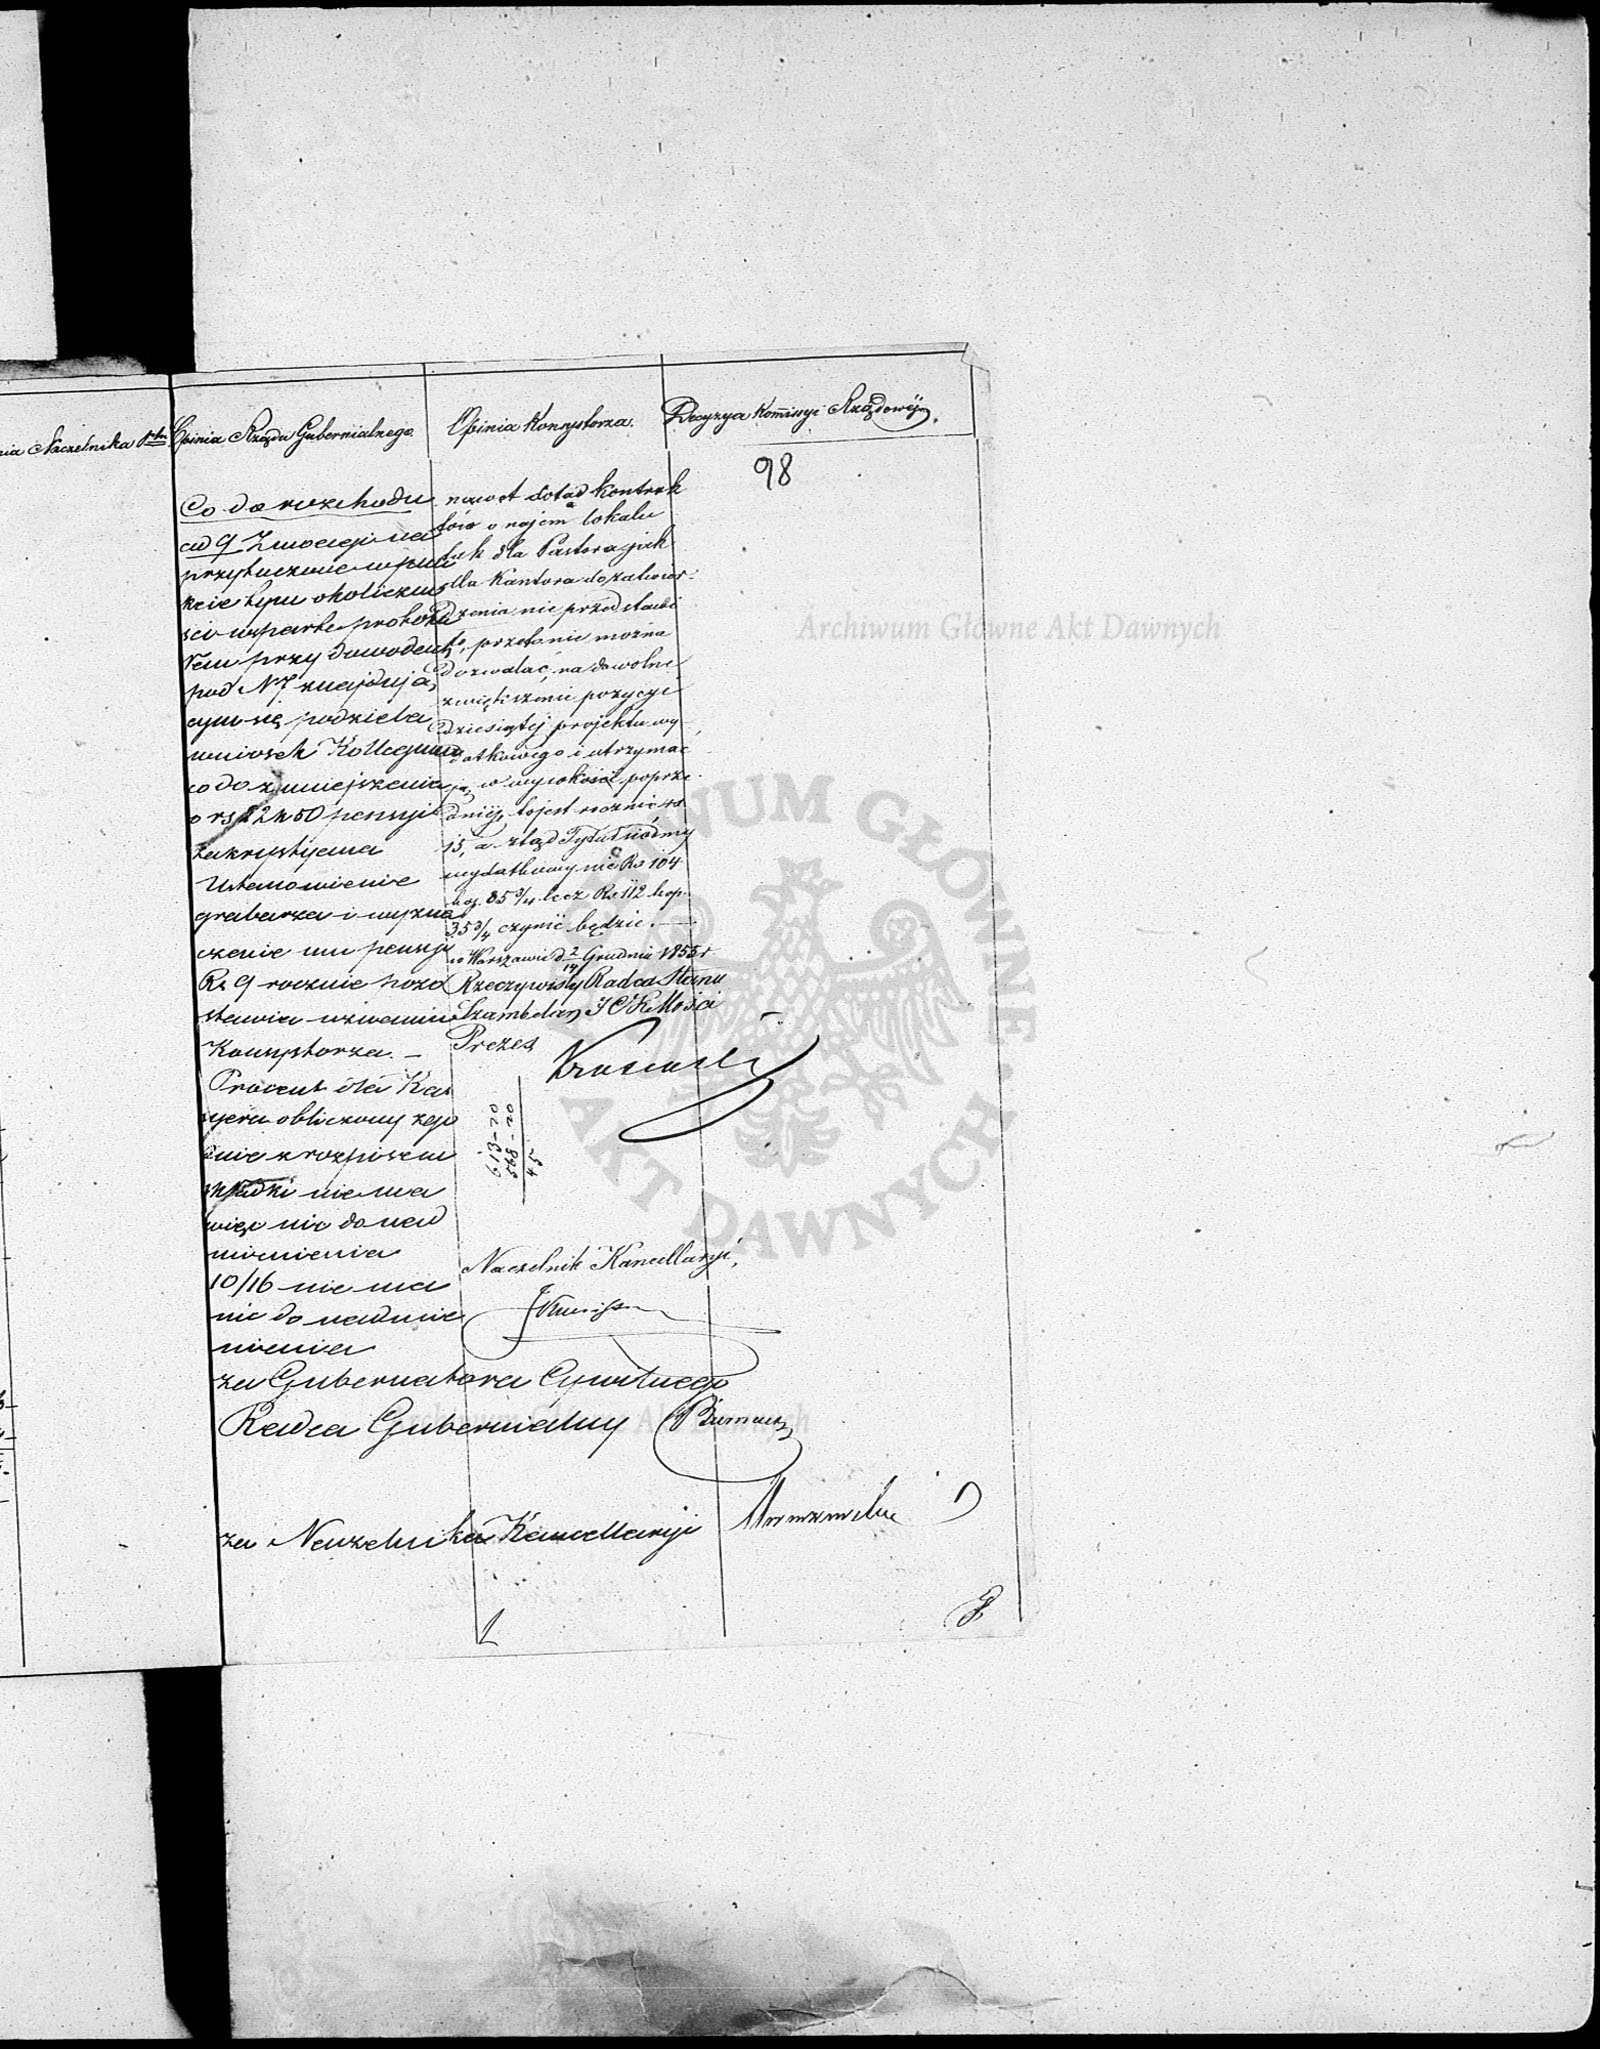 nia Naczelnika Ptu
Opinia Rządu Gubernialnego.
Co do rozchodu
ad 9 Z uwagi na
przytoczone w pun
kcie tym okoliczno
ści wsparte protoku
łem przy dowodach
pod N 7 znajdują
cym się podziela
wniosek Kollegium
co do zmniejszenia
o rs 12 k 50 pensyi
zakrystyana
Ustanowienie
grabarza i wyzna
czenie mu pensyi
Rs 9 rocznie pozo
stawia uznaniu
Konsystorza. –
Procent dla Kas
syera obliczony zgo
dnie z rozpisem
składki nie ma
więc nic do nad
mienienia
10/16 nie ma
nic do nadmie
nienia
za Gubernatora Cywilnego
Radca Gubernialny
za Naczelnika Kancellaryi
Opinia Konsystorza.
nawet dotąd kontrak
tów o najem lokalu
tak dla Pastora jak
dla Kantora do zatwier-
dzenia nie przedstawi
ło, przeto nie można
dozwalać, na dowolne
zwiększenie pozycyi
dziesiątej projektu wy
datkowego i utrzymać
ją w wysokości poprze
dniej, to jest rocznie rs
15, a ztąd Tytuł siódmy
wydatkowy nie Rs 104
kop. 85 3/4 lecz Rs 112 kop.
35 3/4 czynić będzie. —
w Warszawie d. 2/14 Grudnia 1855 r.
Rzeczywisty Radca Stanu
Szambelan J C K Mości
Prezes
613-20
568-20
45
Naczelnik Kancellaryi,
Decyzya Kommissyi Rządowéj.
98
Archiwum Główne Akt Dawnych
ARCHIWUM GŁÓWNE
AKT DAWNYCH